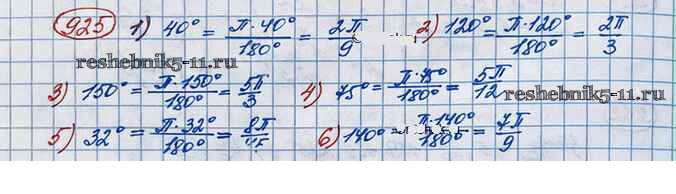 925 1) 40° = π·40°/180° = 2π/9 2) 120° = π·120°/180° = 2π/3
reshebnik5-11.ru
3) 150° = π·150°/180° = 5π/3 4) 75° = π·75°/180° = 5π/12
reshebnik5-11.ru
5) 32° = π·32°/180° = 8π/45 6) 140° = π·140°/180° = 7π/9